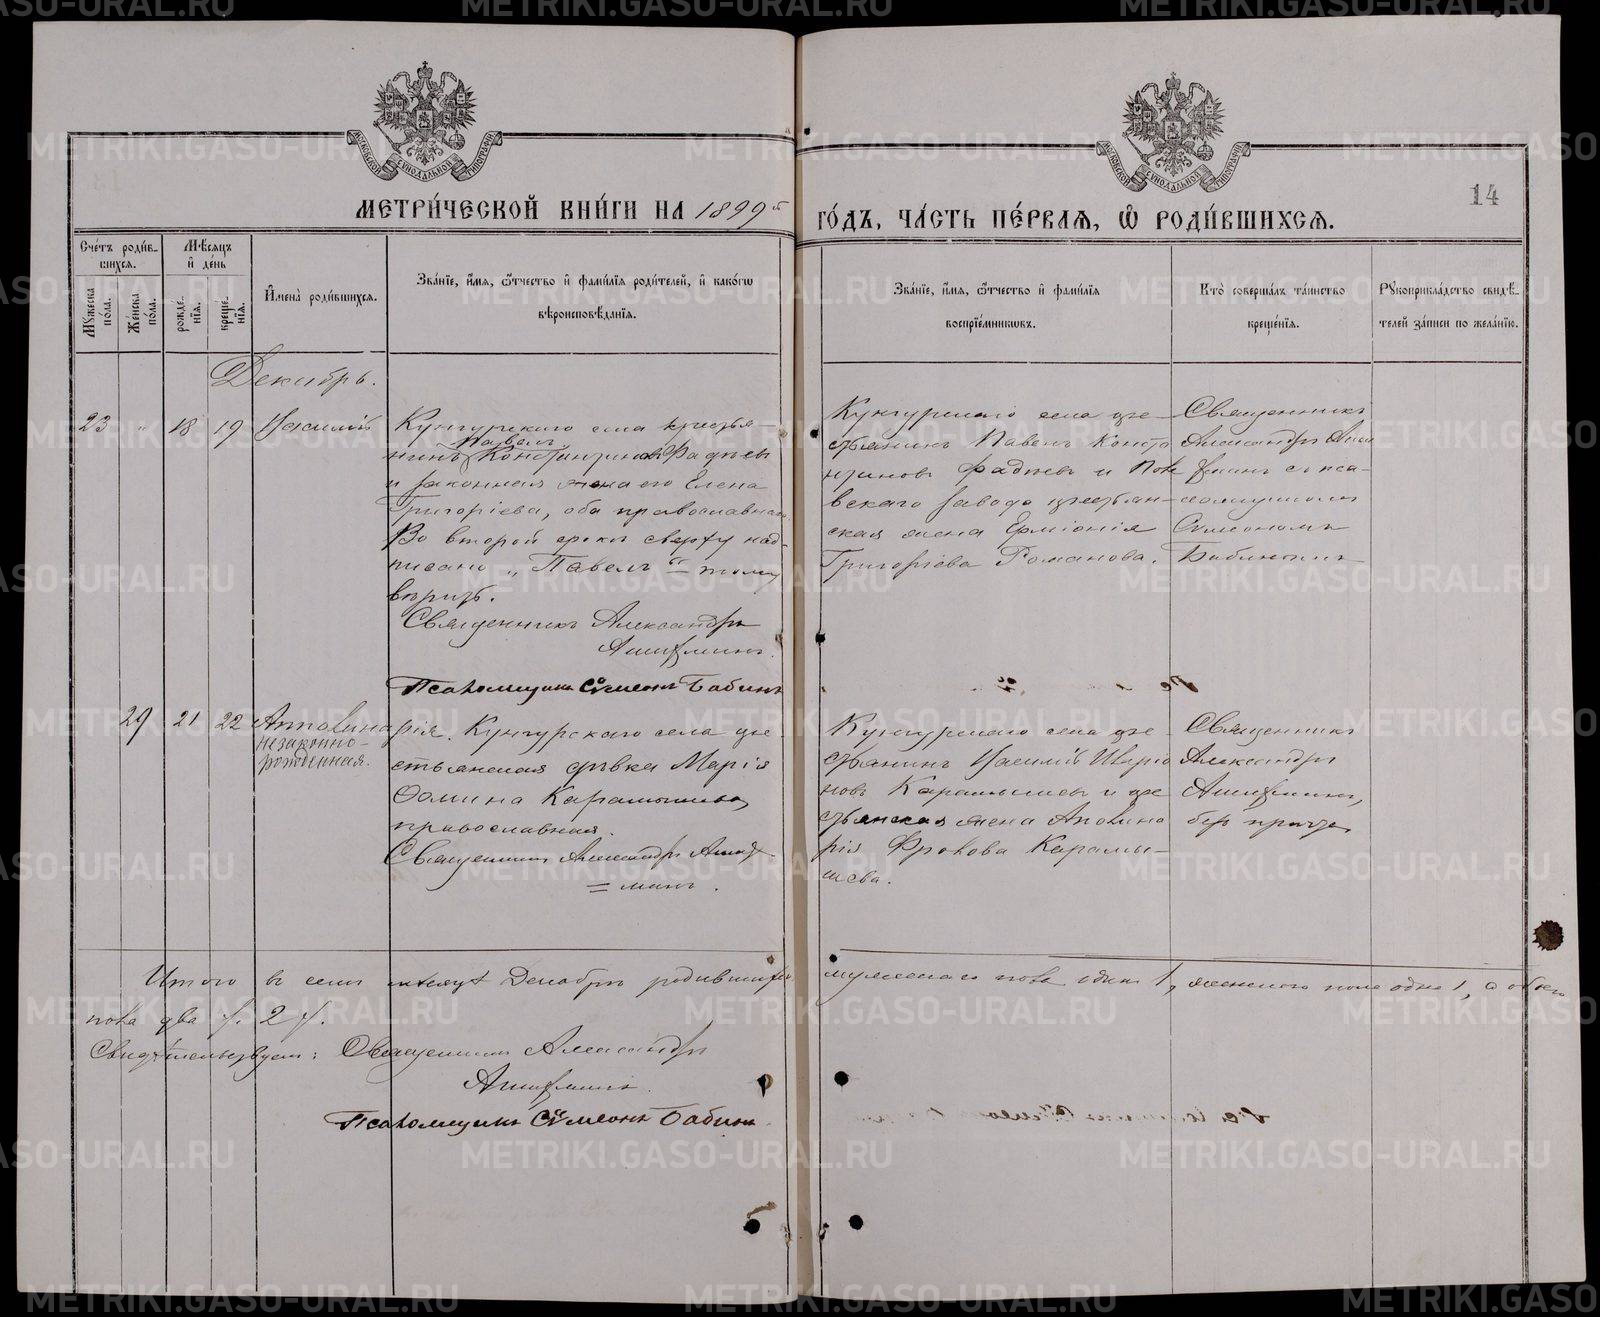 МЕТРИ́ЧЕСКОЙ КНИ́ГИ НА 1899й
ГО́ДЪ, ЧА́СТЬ ПЕ́РВАѦ, Ѡ҆ РОДИ́ВШИХСѦ.
14
Сче́тъ роди́вшихсѧ.
Мѣ́сѧцъ и҆ де́нь
Мꙋ́жеска по́ла.
Же́нска по́ла.
рожде́нїѧ.
креще́нїѧ.
И҆мена̀ роди́вшихсѧ.
Зва́нїе, и҆́мѧ, ѻ҆́тчество и҆ фами́лїѧ роди́телей, и҆ како́гѡ
вѣроисповѣ́данїѧ.
Зва́нїе, и҆́мѧ, ѻ҆́тчество и҆ фами́лїѧ
воспрїе́мникѡвъ.
Кто̀ соверша́лъ та́инство
креще́нїѧ.
Рꙋкоприкла́дство свидѣ́телей за́писи по жела́нїю.
Декабрь.
23 " 18 19 Василій
Кунгурскаго села крестья-
Павелъ
нинъ Константиновъ Фадѣевъ
и законная жена его Елена
Григоріева, оба православные.
Во второй строкѣ сверху над-
писано „Павелъ“ – тому
вѣрить.
Священникъ Александръ
Ашихминъ.
Псаломщикъ Сѵмеонъ Бабинъ
Кунгурскаго села кре-
стьянинъ Павелъ Конста
нтиновъ Фадѣевъ и Поле
вскаго завода крестьян-
ская жена Ерміонія
Григоріева Романова.
Священникъ
Александръ Аши
хминъ съ пса-
ломщикомъ
Сѵмеономъ
Бабинымъ
29 21 22 Апполинарія.
незаконно-
рожденная.
Кунгурскаго села кре
стьянская дѣвка Марія
Фомина Карамышева,
православная.
Священникъ Александръ Аших
= минъ.
Кунгурскаго села кре-
стьянинъ Василій Иларіо
новъ Карамышевъ и кре
стьянская жена Аполина
рія Фролова Карамы-
шева.
Священникъ
Александръ
Ашихминъ,
безъ причта
Итого въ семъ мѣсяцѣ Декабрѣ родившихся мужескаго пола одинъ 1, женскаго пола одна 1, а обоего
пола два /. 2 /.
Свидѣтельствуемъ: Священникъ Александръ
Ашихминъ.
Псаломщикъ Сѵмеонъ Бабинъ.
METRIKI.GASO-URAL.RU